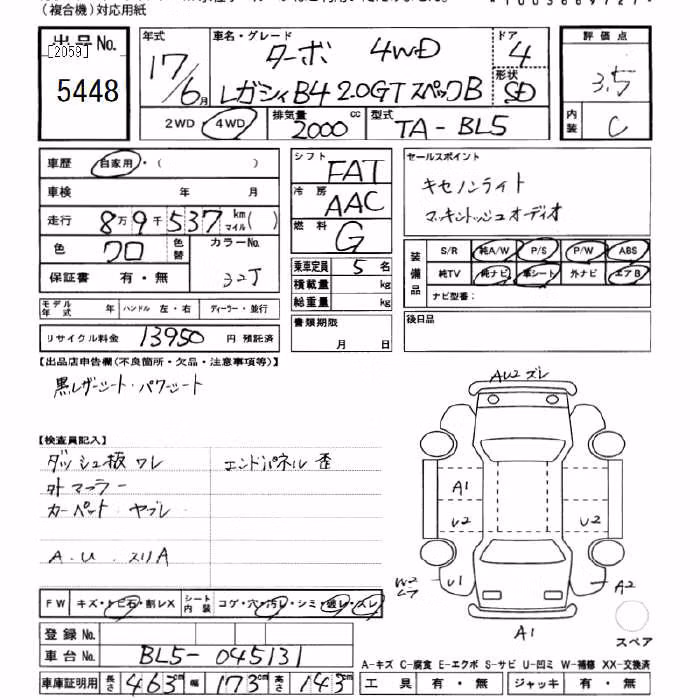 (複合機)対応用紙
出品No. [2059] 5448
年式 17/6月
車名・グレード ターボ 4WD
レガシィB4 2.0GTスペックB
ドア 4
形状 SD
評価点 3.5
内装 C
2WD・4WD
排気量 2000 cc
型式 TA-BL5
車歴 自家用・( )
車検 年 月
走行 8万9千537 km マイル( )
色 クロ 色替
カラーNo. 32J
保証書 有・無
シフト FAT
冷房 AAC
燃料 G
乗車定員 5名
積載量 kg
総重量 kg
書類期限 月 日
セールスポイント
キセノンライト
マッキントッシュオーディオ
装備品 S/R 純A/W P/S P/W ABS
純TV 純ナビ 革シート 外ナビ エアB
ナビ型番:
後日品
モデル年式 年 ハンドル 左・右 ディーラー・並行
リサイクル料金 13950 円 預託済
【出品店申告欄(不良箇所・欠品・注意事項等)】
黒レザーシート・パワーシート
【検査員記入】
ダッシュ板ワレ エンドパネル歪
外マフラー
カーペット ヤブレ
A.U.スリA
FW キズ・トビ石・割レX シート内装 コゲ・穴・汚レ・シミ・破レ・スレ
登録No.
車台No. BL5-045131
車庫証明用 長さ 463cm 幅 173cm 高さ 143cm
AU2 ズレ
A1
U2 U2
W2 U1 A2
A1
スペア
A-キズ C-腐食 E-エクボ S-サビ U-凹ミ W-補修 XX-交換済
工具 有・無 ジャッキ 有・無